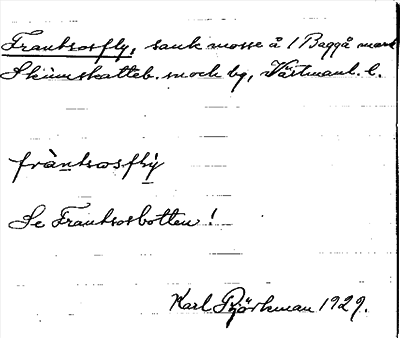 Frantsosfly, sank mosse å 1 Baggå mark
Skinnskatteb. sock by, Västmanl. l.
fràntsosfly
Se Frantsosbotten!
Karl Björkman 1929.